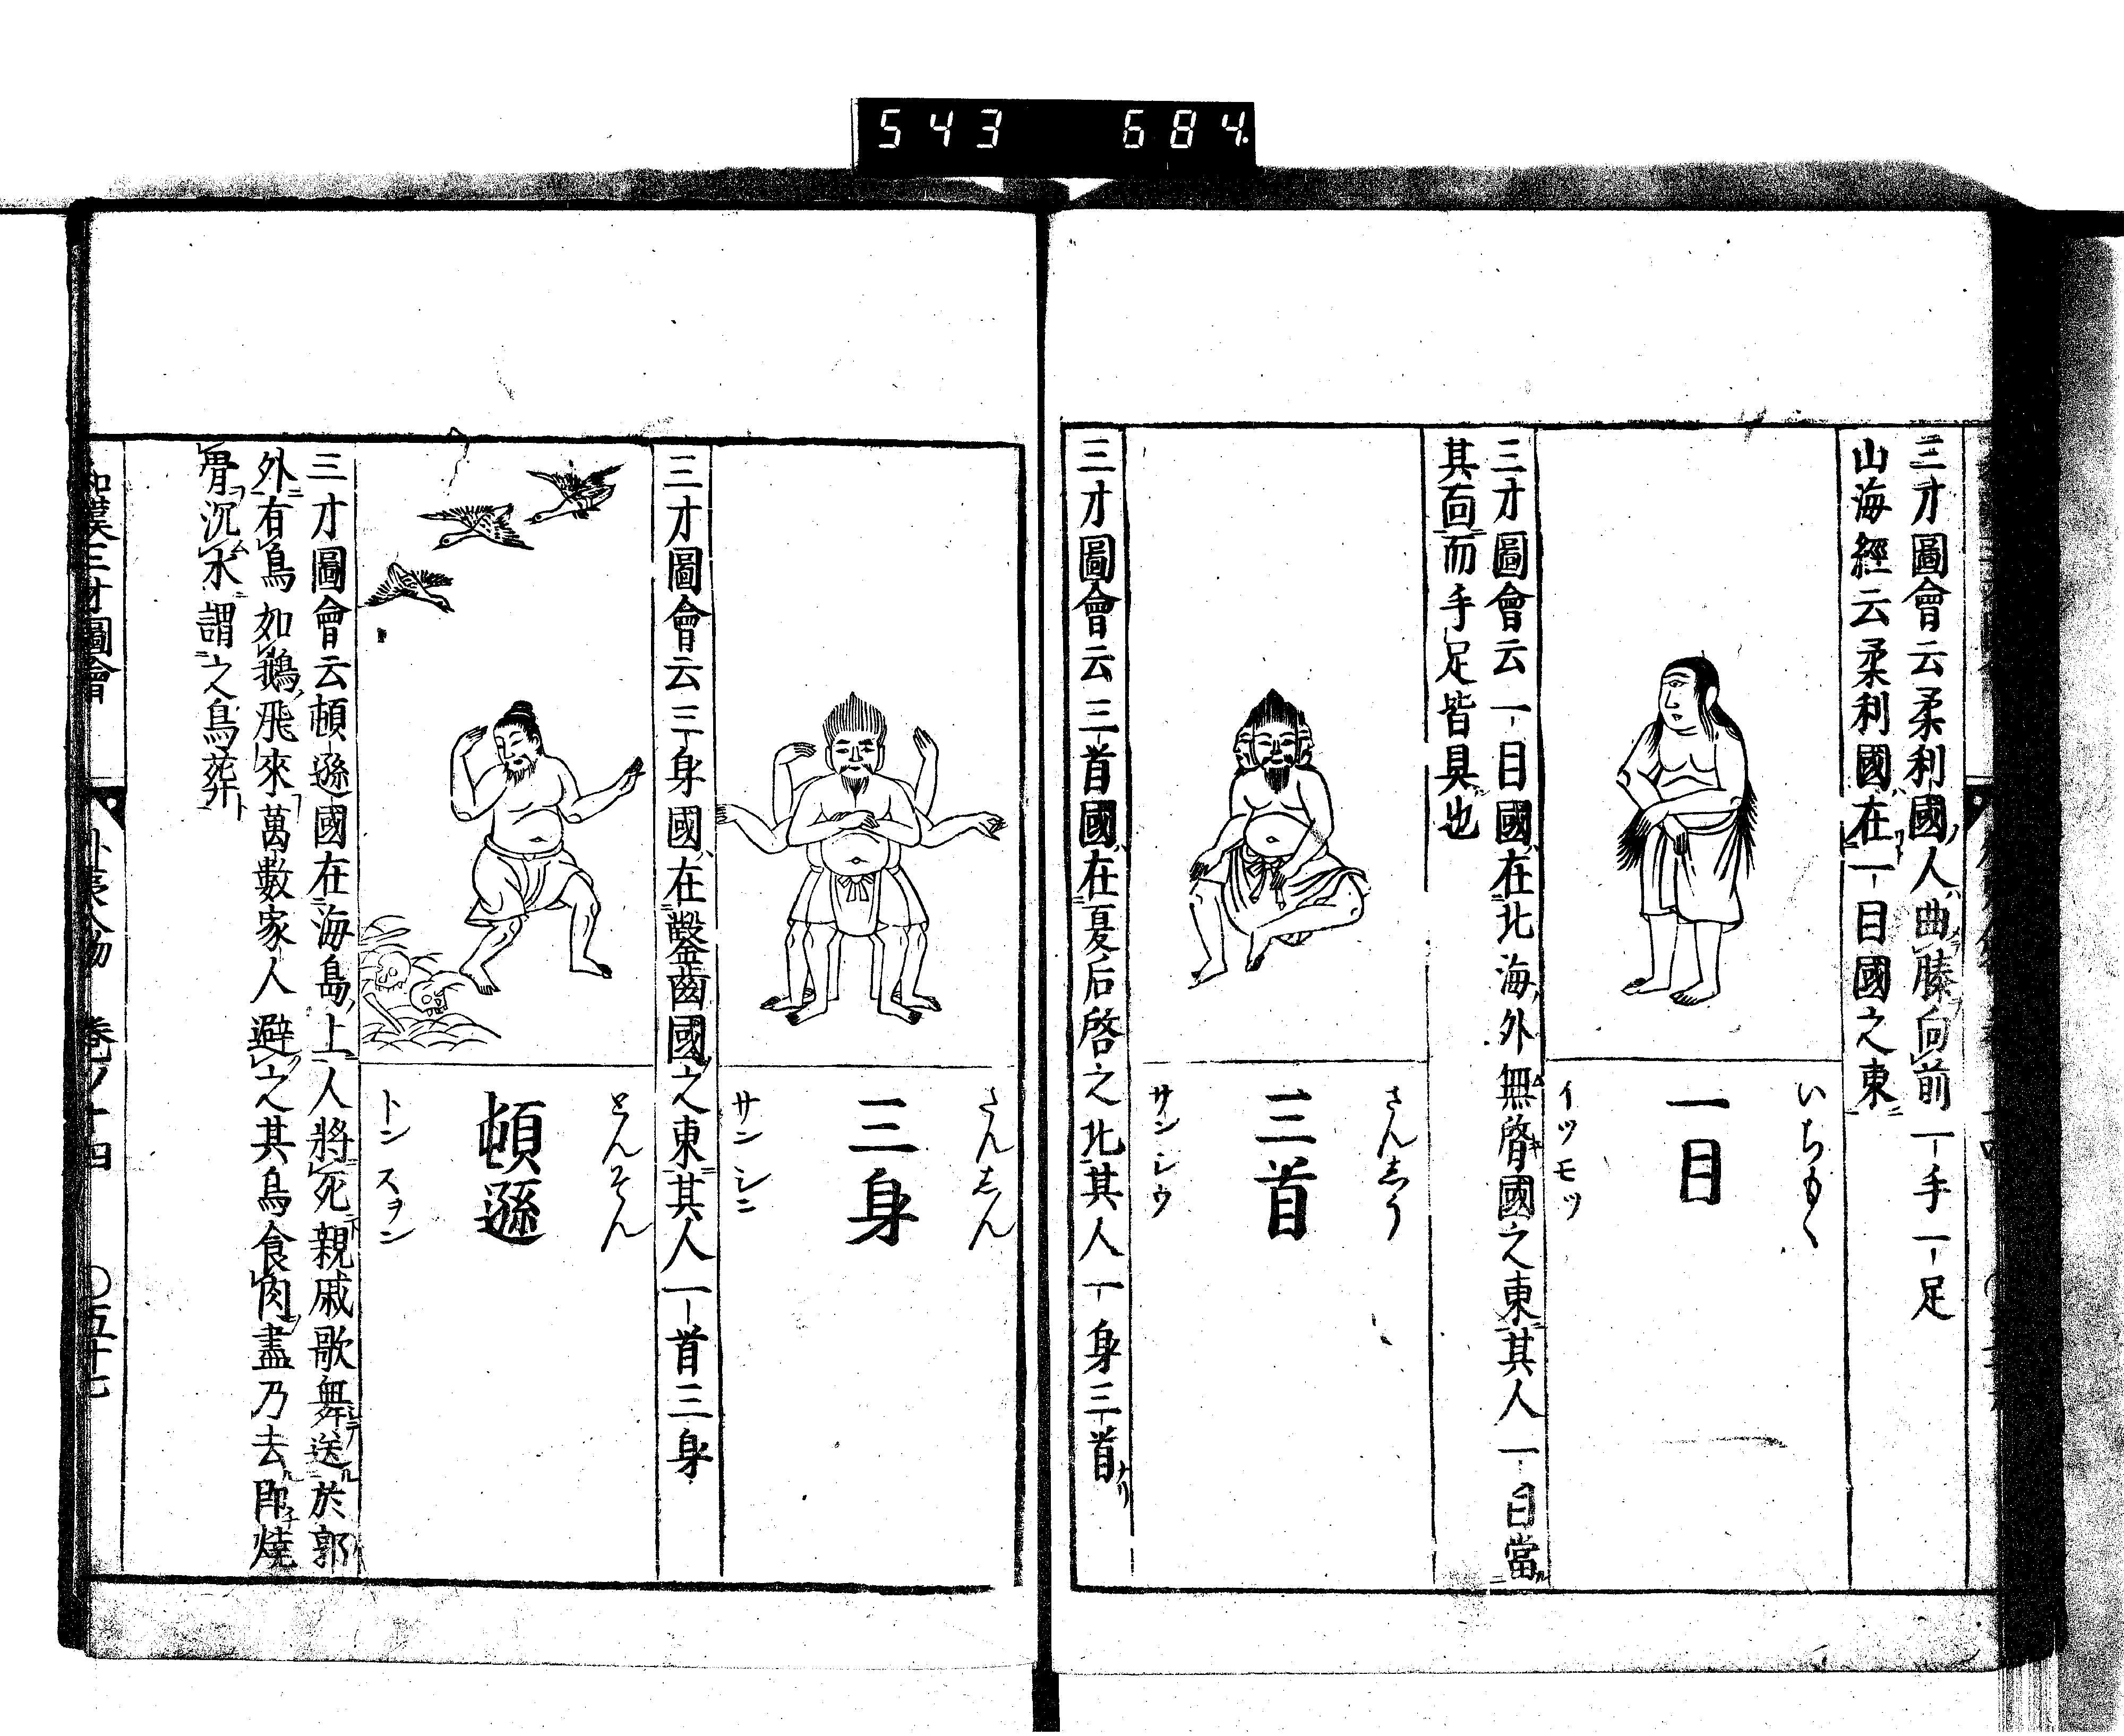 543 684.
三才圖會云柔利國ノ人ハ曲膝向前一手一足
山海經云柔利國ハ在一目國之東
いちもく
一目
イツモツ
三才圖會云一目國ハ在北海ノ外無䏿國之東其人一目當
其面而手足皆具也
さんしう
三首
サンシウ
三才圖會云三首國ハ在夏后啓之北其人一身三首ナリ
さんしん
三身
サンシン
三才圖會云三身國ハ在鑿齒國ノ之東其人一首三身
とんそん
頓遜
トンスヲン
三才圖會云頓遜國在海島ノ上人將死親戚歌舞送於郭
外有鳥如鵝飛來萬數家人避之其鳥食肉盡乃去卽燒
骨沉水謂之鳥葬ト
和漢三才圖會 外夷人物 卷ノ十四 〇五十七